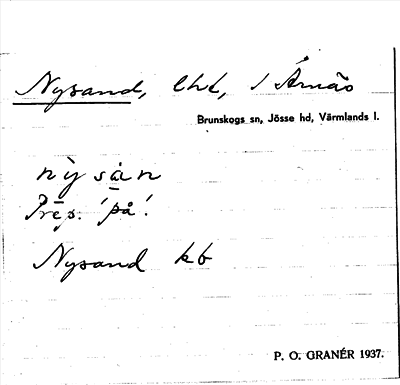 Nysand, lht, / Årnäs
Brunskogs sn, Jösse hd, Värmlands l.
nỳsa̱n
Prep. 'på'.
Nysand kb
P. O. GRANÉR 1937.